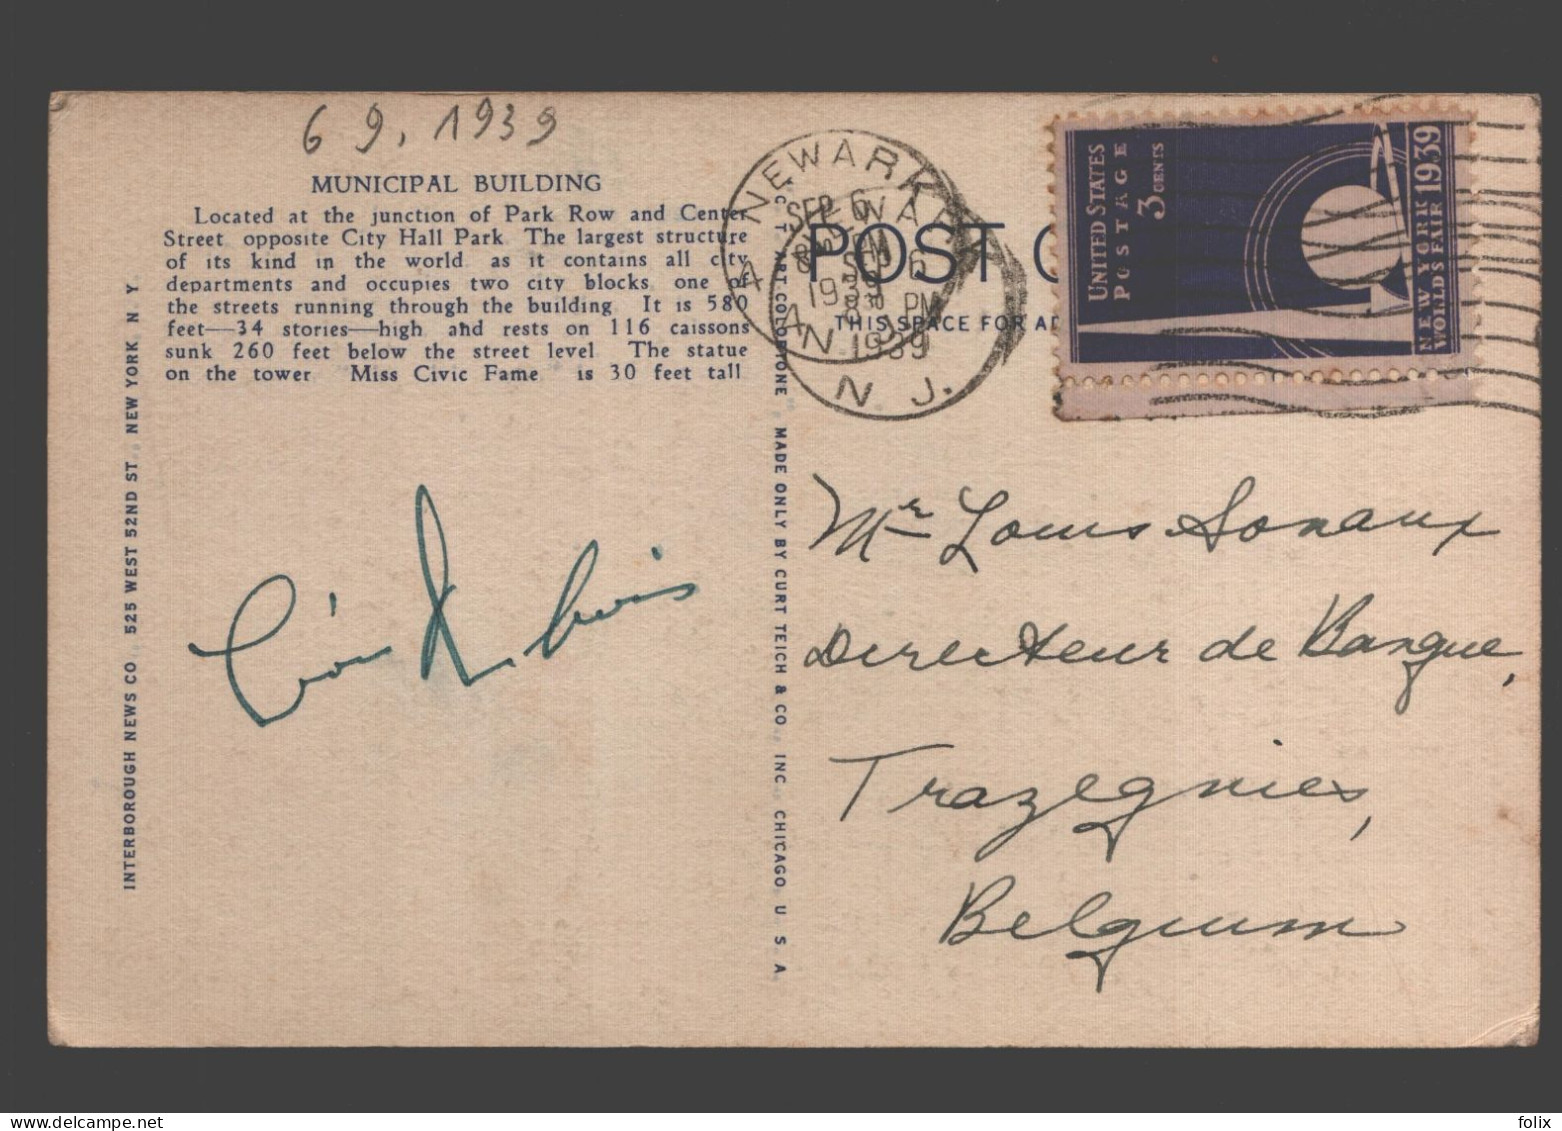 6 9. 1939
MUNICIPAL BUILDING
Located at the junction of Park Row and Center
Street opposite City Hall Park The largest structure
of its kind in the world as it contains all city
departments and occupies two city blocks one of
the streets running through the building. It is 580
feet—34 stories—high and rests on 116 caissons
sunk 260 feet below the street level The statue
on the tower Miss Civic Fame is 30 feet tall
INTERBOROUGH NEWS CO., 525 WEST 52ND ST., NEW YORK N Y.
C. T. ART COLORTONE", MADE ONLY BY CURT TEICH & CO., INC., CHICAGO. U. S. A.
POST C
THIS SPACE FOR AD
NEWARK
SEP 6
1939
N. J.
NEWARK
SEP 6
830 PM
1939
N. J.
UNITED STATES
POSTAGE
3 CENTS
NEW YORK 1939
WORLD'S FAIR
Mr Louis Sonaux
Directeur de Banque,
Trazegnies,
Belgium
felix